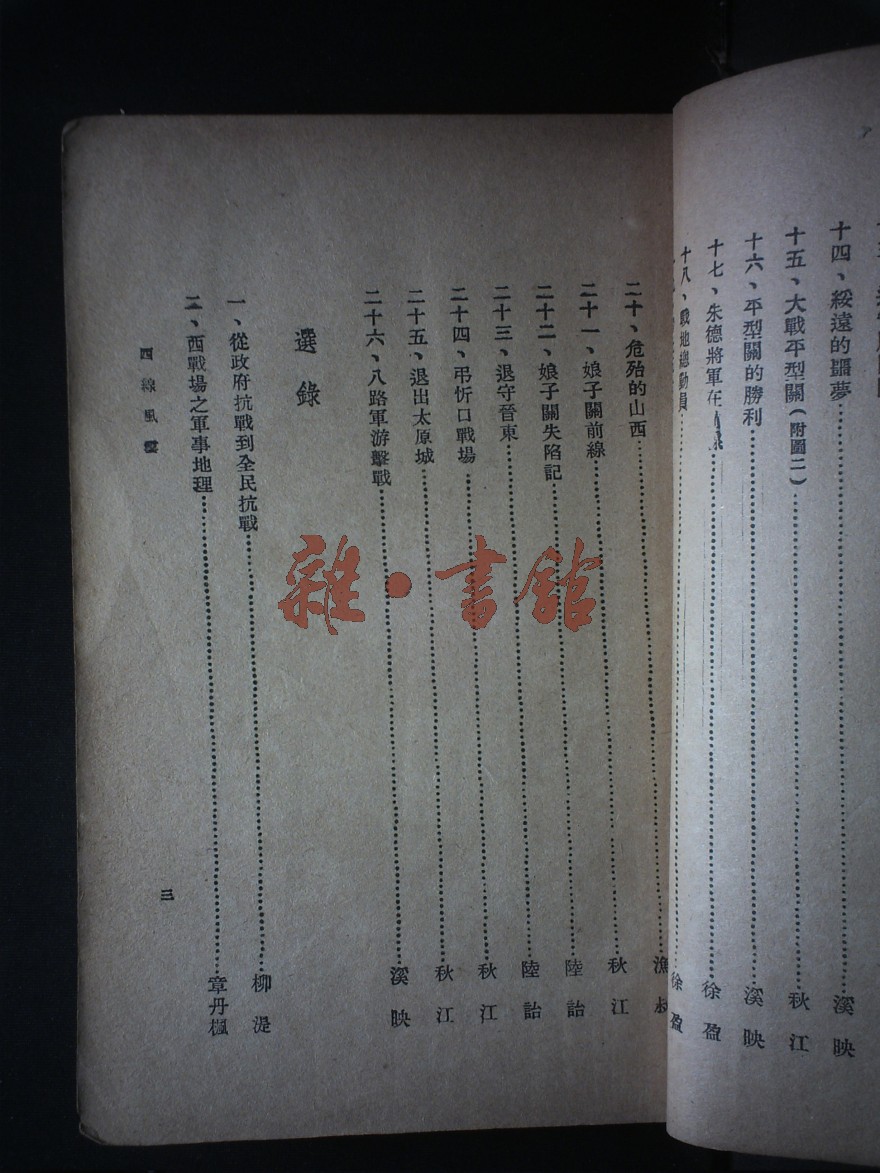 十四、綏遠的噩夢……溪映
十五、大戰平型關(附圖二)……秋江
十六、平型關的勝利……溪映
十七、朱德將軍在……徐盈
十八、戰地總動員……徐盈
二十、危殆的山西……漁叔
二十一、娘子關前線……秋江
二十二、娘子關失陷記……陸詒
二十三、退守晉東……陸詒
二十四、弔忻口戰場……秋江
二十五、退出太原城……秋江
二十六、八路軍游擊戰……溪映
選錄
一、從政府抗戰到全民抗戰……柳湜
二、西戰場之軍事地理……章丹楓
西線風雲
三
雜·書館